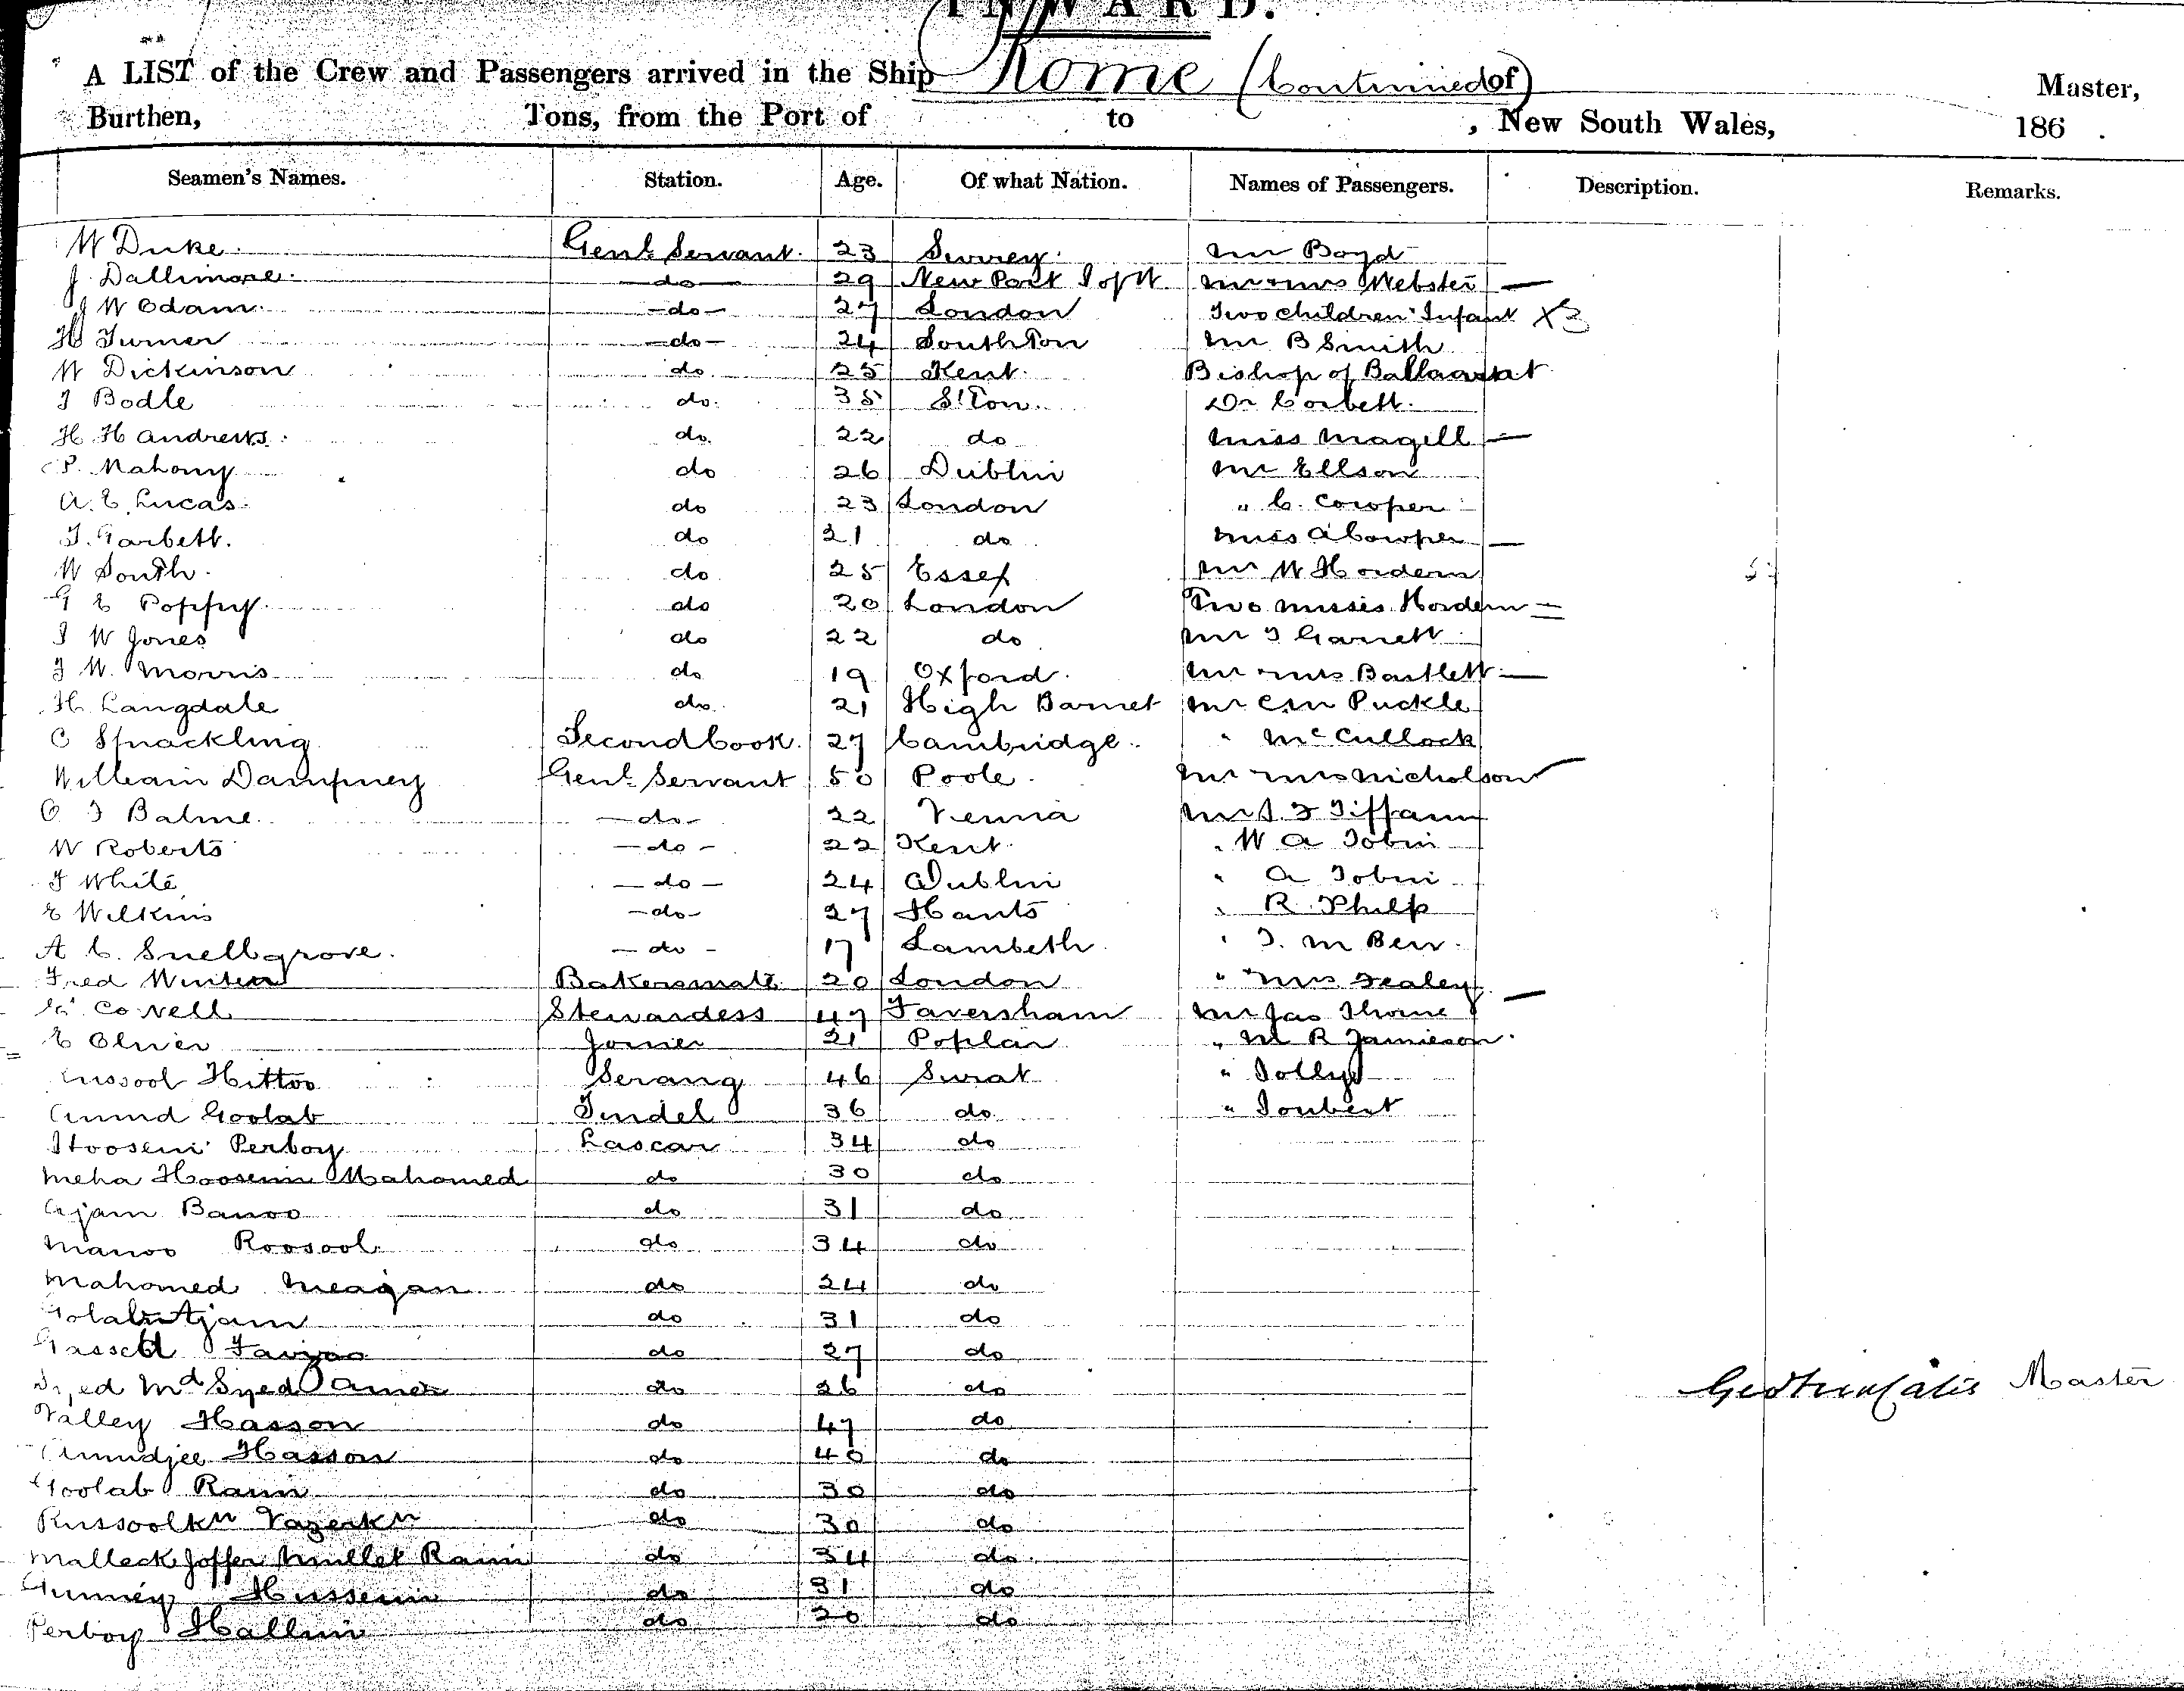 INWARD.
A LIST of the Crew and Passengers arrived in the Ship Rome (Continued) of Master,
Burthen, Tons, from the Port of to , New South Wales, 186 .
Seamen's Names. Station. Age. Of what Nation. Names of Passengers. Description. Remarks.
W Duke. Genl Servant. 23 Surrey. Mr Boyd
J. Dallimore. do 29 New Port I of W. Mr & Mrs Webster —
J W Odam. do 27 London Two children Infant X3
H Turner do 24 SouthTon Mr B Smith
W Dickinson do 25 Kent. Bishop of Ballaarat
J Bodle do. 35 S'Ton. Dr Corbett.
H. H Andrews. do. 22 do Miss Magell —
P. Mahony do 26 Dublin Mr Ellson
A. E. Lucas. do 23 London " C. Cowper
T. Garbett. do 21 do Miss A Cowper —
W South. do 25 Essex Mr W Hordern
G E Poppy. do 20 London Two Misses Hordern =
J W Jones do 22 do Mr T Garrett
J W. Morris do 19 Oxford. Mr & Mrs Bartlett —
H. Langdale do. 21 High Barnet Mr C M Puckle
C Spackling Second Cook. 27 Cambridge. " McCullock
William Dampney Genl Servant 50 Poole. Mr & Mrs Nicholson
C J Balme. do 22 Venna Mr S. F Tiffany
W Roberts do 22 Kent. " W A Tobin
J White do 24 Dublin " A Tobin
E Wilkins do 27 Hants " R. Philp
A C. Snellgrove. do 17 Lambeth. " J. M Berr.
Fred Winter Bakersmate 20 London " Mrs Fealey. —
Covell Stewardess 47 Faversham Mr Jas Thorne
E Oliver Joiner 21 Poplar " M R Jamieson.
Russool Hittoo Serang 46 Surat " Jolly
Amud Goolab Tindel 36 do " Joubert
Hoosein Perboy Lascar 34 do
Meha Hoosein Mahomed do 30 do
Ajam Banoo do 31 do
Manoo Roosool do 34 do
Mahomed Meagan do 24 do
Golab Ajam do 31 do
do 27 do
Syed Md Syed Amer do 26 do Master
Valley Hasson do 47 do
Amudjee Hasson do 40 do
Goolab Ram do 30 do
Russoolkn Vazerkn do 30 do
Malleck Joffer Mullet Ram do 34 do
Hussein do 31 do
Perboy Hallim do 20 do